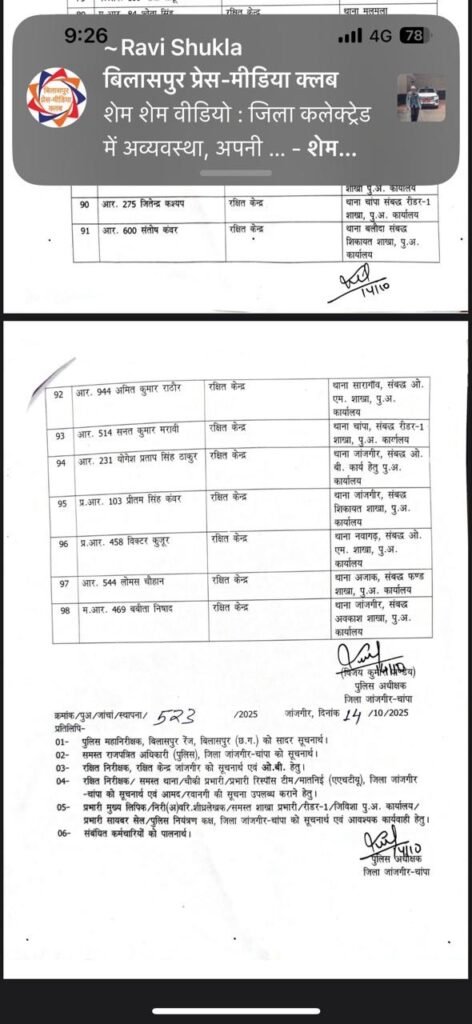 89 म.आर. 84 श्वेता सिंह रक्षित केन्द्र थाना मुलमुला
9:26
4G 78
~ Ravi Shukla
बिलासपुर प्रेस-मीडिया क्लब
बिलासपुर
प्रेस-मीडिया
क्लब
शेम शेम वीडियो : जिला कलेक्ट्रेड
में अव्यवस्था, अपनी ... - शेम...
शाखा पु.अ. कार्यालय
90 आर. 275 जितेन्द्र कश्यप रक्षित केन्द्र थाना चांपा संबद्ध रीडर-1
शाखा, पु.अ. कार्यालय
91 आर. 600 संतोष कंवर रक्षित केन्द्र थाना बलौदा संबद्ध
शिकायत शाखा, पु.अ.
कार्यालय
14/10
92 आर. 944 अमित कुमार राठौर रक्षित केन्द्र थाना सारागॉव, संबद्ध ओ.
एम. शाखा, पु.अ.
कार्यालय
93 आर. 514 सनत कुमार मरावी रक्षित केन्द्र थाना चांपा, संबद्ध रीडर-1
शाखा, पु.अ. कार्यालय
94 आर. 231 योगेश प्रताप सिंह ठाकुर रक्षित केन्द्र थाना जांजगीर, संबद्ध ओ.
बी. कार्य हेतु पु.अ.
कार्यालय
95 प्र.आर. 103 प्रीतम सिंह कंवर रक्षित केन्द्र थाना जांजगीर, संबद्ध
शिकायत शाखा, पु.अ.
कार्यालय
96 प्र.आर. 458 विक्टर कुजूर रक्षित केन्द्र थाना नवागढ़, संबद्ध ओ.
एम. शाखा, पु.अ.
कार्यालय
97 आर. 544 लोमस चौहान रक्षित केन्द्र थाना अजाक, संबद्ध फण्ड
शाखा, पु.अ. कार्यालय
98 म.आर. 469 बबीता निषाद रक्षित केन्द्र थाना जांजगीर, संबद्ध
अवकाश शाखा, पु.अ.
कार्यालय
14/10
(विजय कुमार पाण्डेय)
पुलिस अधीक्षक
जिला जांजगीर-चांपा
क्रमांक/पुअ/जांचां/स्थापना/ 523 /2025 जांजगीर, दिनांक 14 /10/2025
प्रतिलिपि-
01- पुलिस महानिरीक्षक, बिलासपुर रेंज, बिलासपुर (छ.ग.) को सादर सूचनार्थ।
02- समस्त राजपत्रित अधिकारी (पुलिस), जिला जांजगीर-चांपा को सूचनार्थ।
03- रक्षित निरीक्षक, रक्षित केन्द्र जांजगीर को सूचनार्थ एवं ओ.बी. हेतु।
04- रक्षित निरीक्षक/ समस्त थाना/चौकी प्रभारी/प्रभारी रिस्पॉस टीम/मातनिई (एएचटीयू), जिला जांजगीर
-चांपा को सूचनार्थ एवं आमद/रवानगी की सूचना उपलब्ध कराने हेतु।
05- प्रभारी मुख्य लिपिक/निरी(अ)वरि.शीघ्रलेखक/समस्त शाखा प्रभारी/रीडर-1/जिविशा पु.अ. कार्यालय/
प्रभारी सायबर सेल/पुलिस नियंत्रण कक्ष, जिला जांजगीर-चांपा को सूचनार्थ एवं आवश्यक कार्यवाही हेतु।
06- संबंधित कर्मचारियों को पालनार्थ।
14/10
पुलिस अधीक्षक
जिला जांजगीर-चांपा